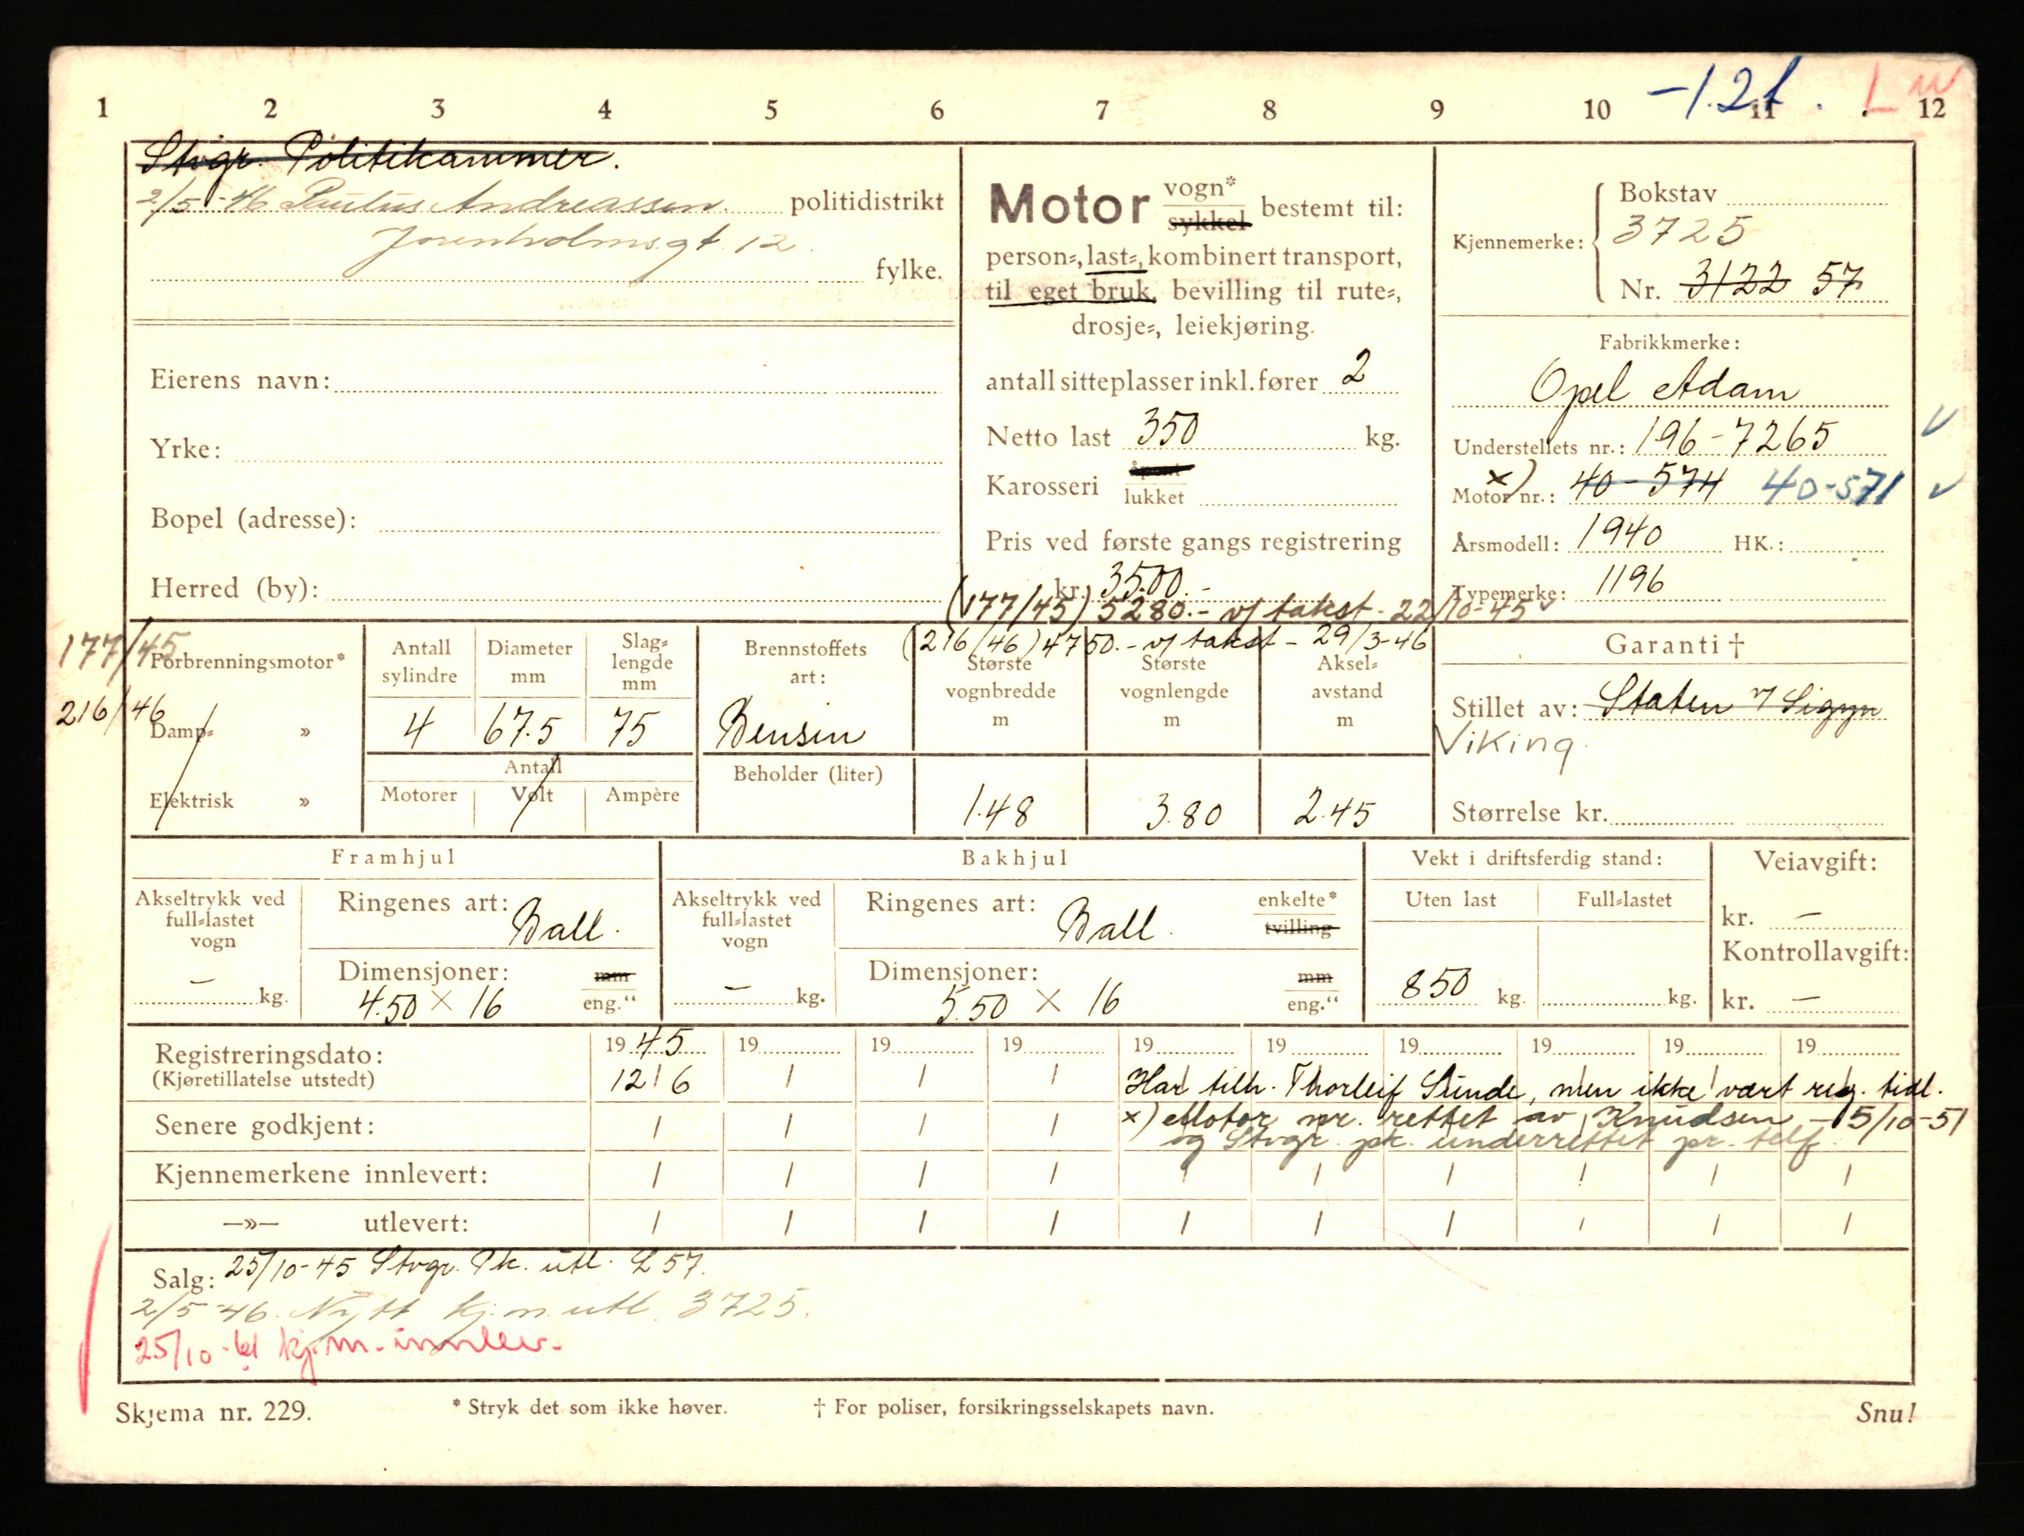 1 2 3 4 5 6 7 8 9 10 11 12
-1.2t. L
Stvgr. Politikammer.
2/5-46 Paulus Andreassen politidistrikt
gt. 12
fylke.
Eierens navn:
Yrke:
Bopel (adresse):
Herred (by):
Motor vogn* sykkel bestemt til:
person-, last-, kombinert transport,
til eget bruk, bevilling til rute-,
drosje-, leiekjøring.
antall sitteplasser inkl. fører 2
Netto last 350 kg.
Karosseri åpent lukket
Pris ved første gangs registrering
kr. 3500.-
(177/45) 5280.- v/ takst - 22/10-45
(216/46) 4750.- v/ takst - 29/3-46
Kjennemerke: Bokstav
3725
Nr. 3122 57
Fabrikkmerke:
Opel Adam
Understellets nr.: 196-7265
x)
Motor nr.: 40-574 40-571
Årsmodell: 1940 HK.:
Typemerke: 1196
177/45
216/46
Forbrenningsmotor*
Damp- »
Elektrisk »
Antall sylindre
4
Diameter mm
67.5
Slag-lengde mm
75
Antall
Motorer Volt Ampère
Brennstoffets art:
Bensin
Beholder (liter)
Største vognbredde m
1.48
Største vognlengde m
3.80
Aksel-avstand m
2.45
Garanti †
Stillet av: Staten v/ Sigyn
Viking.
Størrelse kr.
Framhjul
Akseltrykk ved full-lastet vogn
– kg.
Ringenes art: Ball.
Dimensjoner: mm
4.50 × 16 eng."
Bakhjul
Akseltrykk ved full-lastet vogn
– kg.
Ringenes art: Ball. enkelte* tvilling
Dimensjoner: mm
5.50 × 16 eng."
Vekt i driftsferdig stand:
Uten last Full-lastet
850 kg. kg.
Veiavgift:
kr. –
Kontrollavgift:
kr. –
Registreringsdato: 19 45 19 19 19 19 19 19 19 19 19
(Kjøretillatelse utstedt) 12/6 / / / Har tilh. Thorleif Sunde, men ikke vært reg. tidl.
Senere godkjent: / / / / x) Motor nr. rettet av Knudsen – 15/10-51
og Stvgr. pk. underrettet pr. telf.
Kjennemerkene innlevert: / / / / / / / / / /
—»— utlevert: / / / / / / / / / /
Salg: 25/10-45 Stvgr. Pk. utl. L 57.
2/5-46. Nytt kj.m. utl. 3725.
25/10-61 kj.m. innlev.
Skjema nr. 229.
* Stryk det som ikke høver.
† For poliser, forsikringsselskapets navn.
Snu!